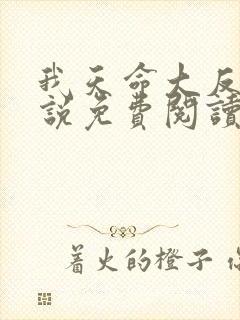 我天命大反
說免費閱讀
着火的橙子